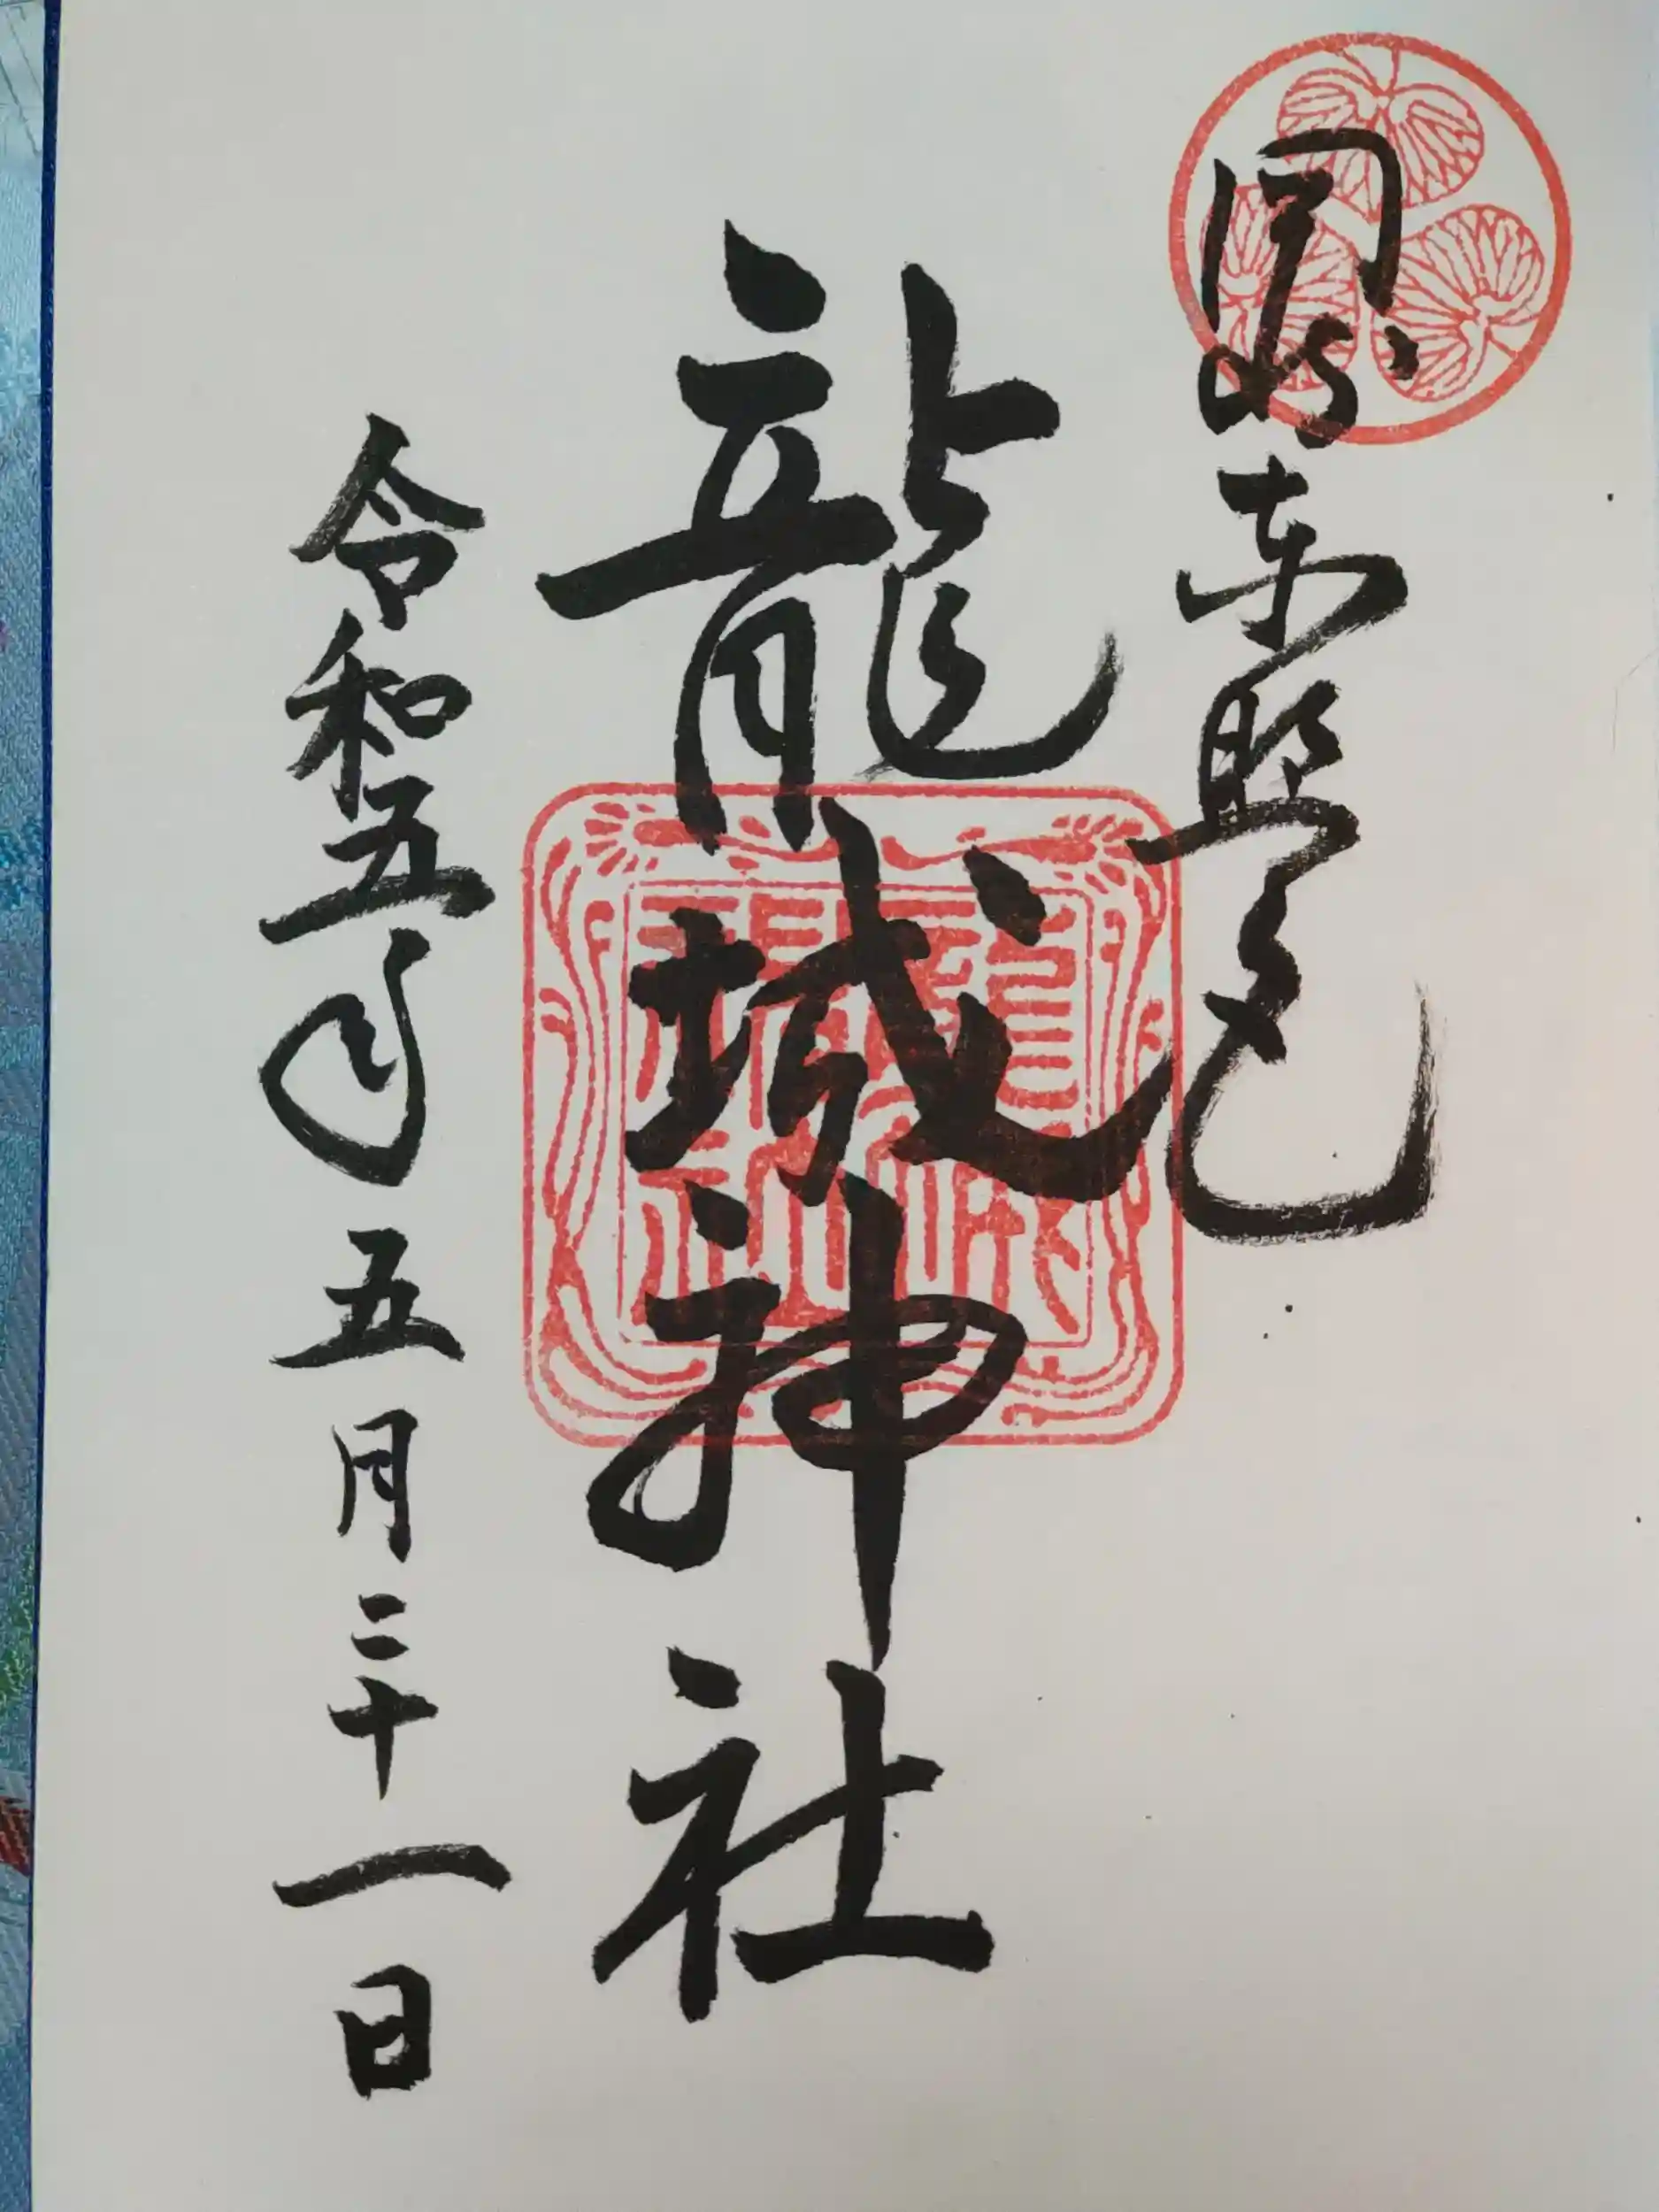 岡崎東照宮
龍城神社
令和五年五月三十一日